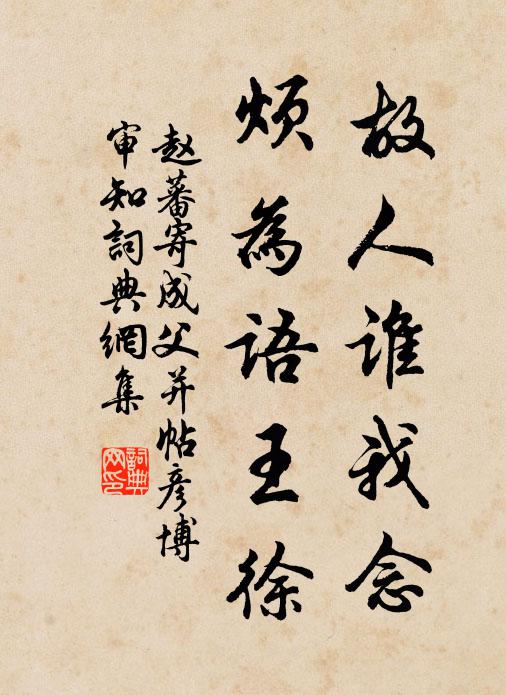 故人谁我念
烦为语王徐
赵蕃寄成父并帖彦博
审知詞典網集
詞典网印